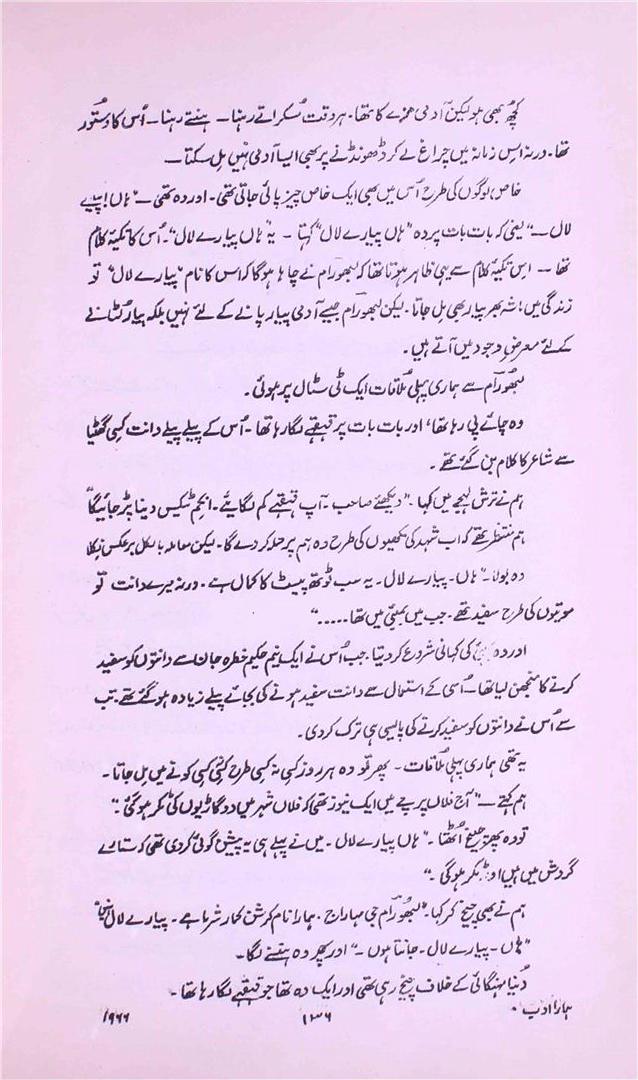 کچھ بھی ہو لیکن آدمی مزے کا تھا۔ ہر وقت مُسکراتے رہنا۔ ہنستے رہنا۔ اُس کا دستُور
تھا۔ ورنہ اِس زمانہ میں چراغ لے کر ڈھونڈنے پر بھی ایسا آدمی نہیں مِل سکتا۔
خاص لوگوں کی طرح اُس میں بھی ایک خاص چیز پائی جاتی تھی۔ اور وہ تھی۔ "ہاں! پیارے
لال۔" یعنی کہ بات بات پر وہ "ہاں پیارے لال" کہتا۔ یہ "ہاں پیارے لال"۔ اُس کا تکیۂ کلام
تھا۔ اس تکیۂ کلام سے یہی ظاہر ہوتا تھا کہ لبھو رام نے چاہا ہوگا کہ اس کا نام "پیارے لال" تو
زندگی میں! شہر بھر پیار بھی مِل جاتا۔ لیکن لبھو رام جیسے آدمی پیار پانے کے لئے نہیں بلکہ پیار لُٹانے
کے لئے معرضِ وجود میں آتے ہیں۔
لبھو رام سے ہماری پہلی مُلاقات ایک ٹی سٹال پر ہوئی۔
وہ چائے پی رہا تھا، اور بات بات پر قہقہے لگا رہا تھا۔ اُس کے پیلے پیلے دانت کِسی گھٹیا
سے شاعر کا کلام بن گئے تھے۔
ہم نے تُرش لہجے میں کہا۔ "دیکھئے صاحب۔ آپ قہقہے کم لگایئے۔ انکم ٹیکس دینا پڑ جائیگا"
ہم منتظر تھے کہ اب شہد کی مکھیوں کی طرح وہ ہم پر حملہ کر دے گا۔ لیکن معاملہ بالکل برعکس نِکلا
وہ بولا۔ "ہاں۔ پیارے لال۔ یہ سب ٹوتھ پیسٹ کا کمال ہے۔ ورنہ میرے دانت تو
موتیوں کی طرح سفید تھے۔ جب میں بمبئی میں تھا....."
اور وہ بمبئی کی کہانی شروع کر دیتا۔ جب اُس نے ایک نیم حکیم خطرہ جان سے دانتوں کو سفید
کرنے کا منجھن لیا تھا۔ اُسی کے استعمال سے دانت سفید ہونے کی بجائے پیلے زیادہ ہو گئے تھے۔ تب
سے اُس نے دانتوں کو سفید کرنے کی پالیسی ہی ترک کر دی۔
یہ تھی ہماری پہلی مُلاقات۔ پھر تو وہ ہر روز کِسی نہ کِسی طرح کِسی کِسی کونے میں مِل جاتا۔
ہم کہتے۔ "آج فلاں پرچے میں ایک نیوز تھی کہ فلاں شہر میں دو گاڑیوں کی ٹکر ہو گئی۔"
تو وہ پھر چیخ اُٹھتا۔ "ہاں پیارے لال۔ میں نے پہلے ہی یہ پیشن گوئی کر دی تھی کہ ستارے
گردش میں ہیں اور ٹکر ہو گی۔"
ہم نے بھی چیخ کر کہا۔ "لبھو رام جی مہاراج۔ ہمارا نام کرشن کمار شرما ہے۔ پیارے لال نہیں"
"ہاں۔ پیارے لال۔ جانتا ہوں۔" اور پھر وہ ہنسنے لگا۔
دُنیا مہنگائی کے خلاف چیخ رہی تھی اور ایک وہ تھا جو قہقہے لگا رہا تھا۔
ہمارا ادب ۱۳۶ ۱۹۶۶